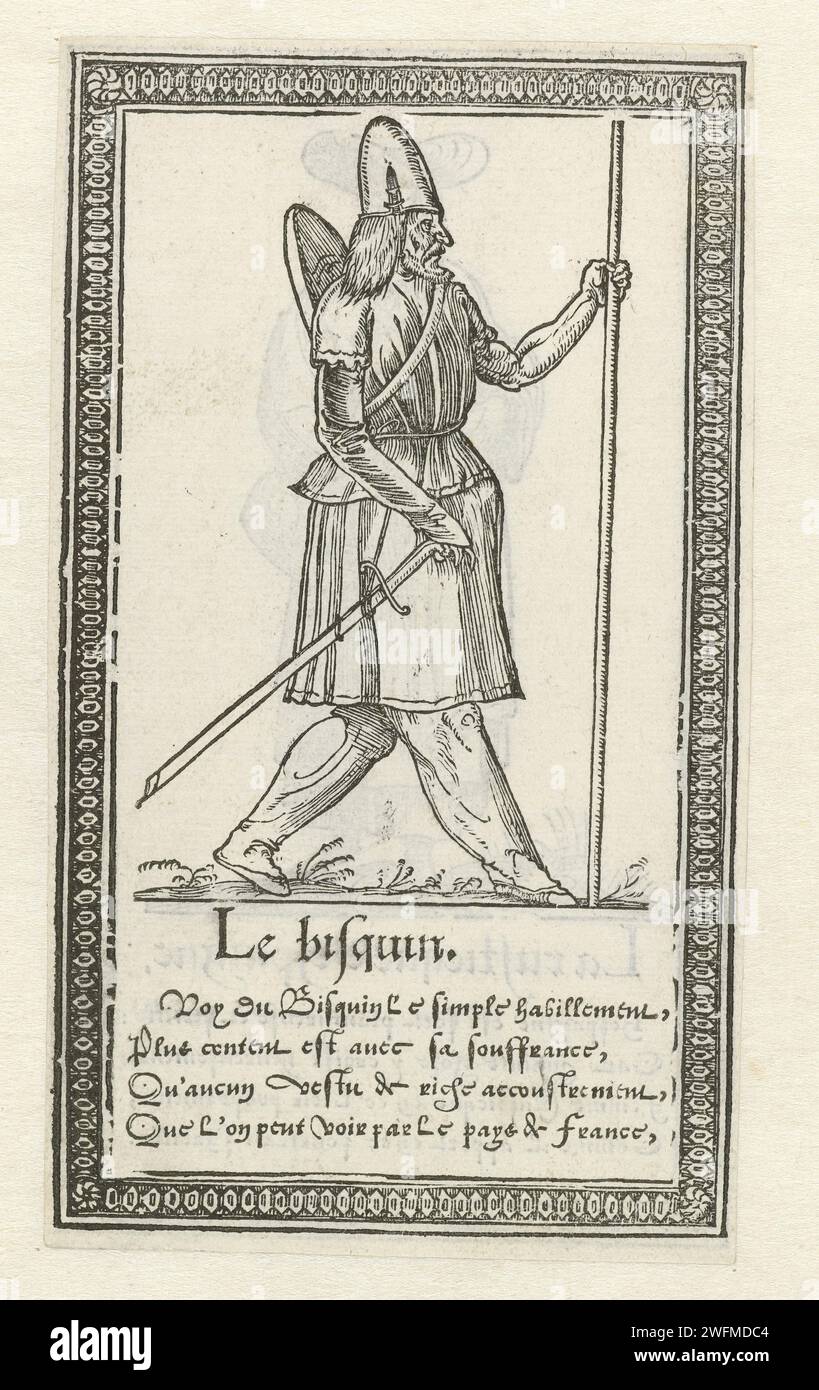 Le bisquin.
Voy du Bisquin le simple habillement,
Plus content est avec sa souffrance,
Qu'aucun vestu de riche accoustrement,
Que l'on peut voir par le pays de France,
alamy
Image ID: 2WFMDC4
www.alamy.com